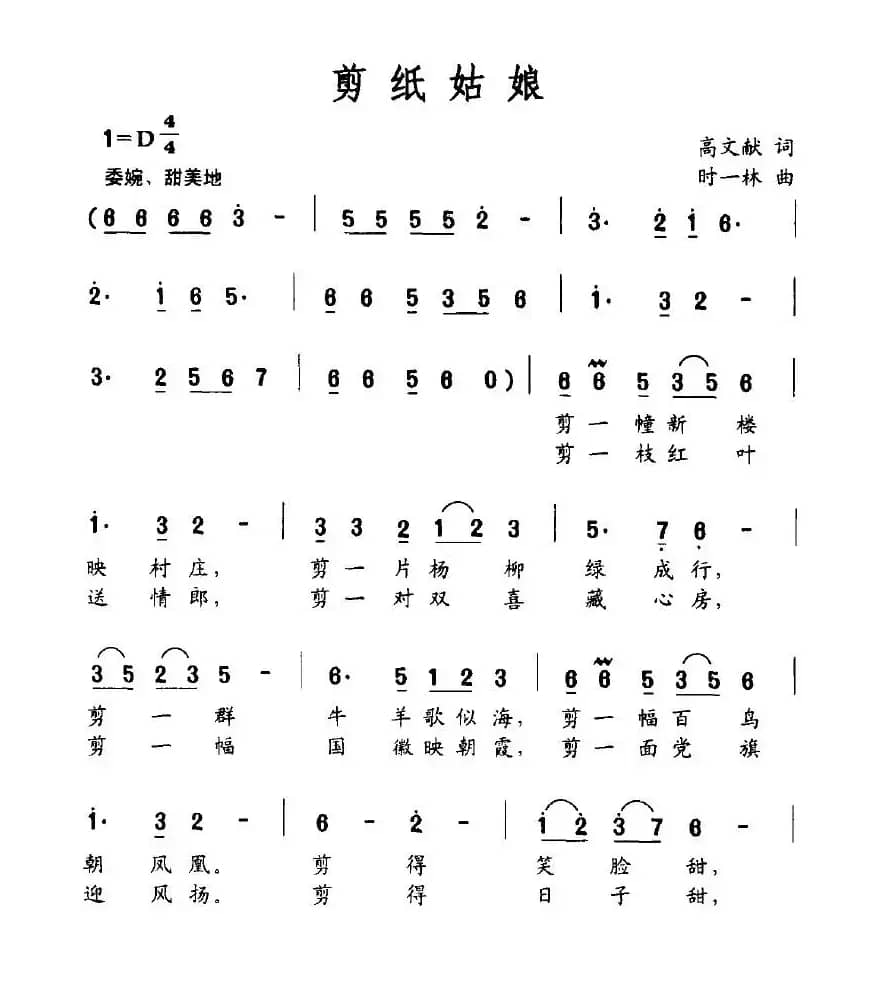 剪纸姑娘
1=D 4/4
高文献 词
委婉、甜美地
时一林 曲
(6 6 6 6 3̇ - | 5 5 5 5 2̇ - | 3̇· 2̇ 1̇ 6· |
2̇· 1̇ 6 5· | 6 6 5 3 5 6 | 1̇· 3 2 - |
3· 2 5 6 7 | 6 6 5 6 0) | 6 6 5 3 5 6 |
剪一幢新 楼
剪一枝红 叶
1̇· 3 2 - | 3 3 2 1 2 3 | 5· 7̣ 6̣ - |
映 村庄, 剪一片杨 柳 绿 成行,
送 情郎, 剪一对双 喜 藏 心房,
3 5 2 3 5 - | 6· 5 1 2 3 | 6 6 5 3 5 6 |
剪 一 群 牛 羊歌似海, 剪一幅百 鸟
剪 一 幅 国 徽映朝霞, 剪一面党 旗
1̇· 3 2 - | 6 - 2̇ - | 1̇ 2̇ 3̇ 7 6 - |
朝 凤凰。 剪 得 笑 脸 甜,
迎 风扬。 剪 得 日 子 甜,